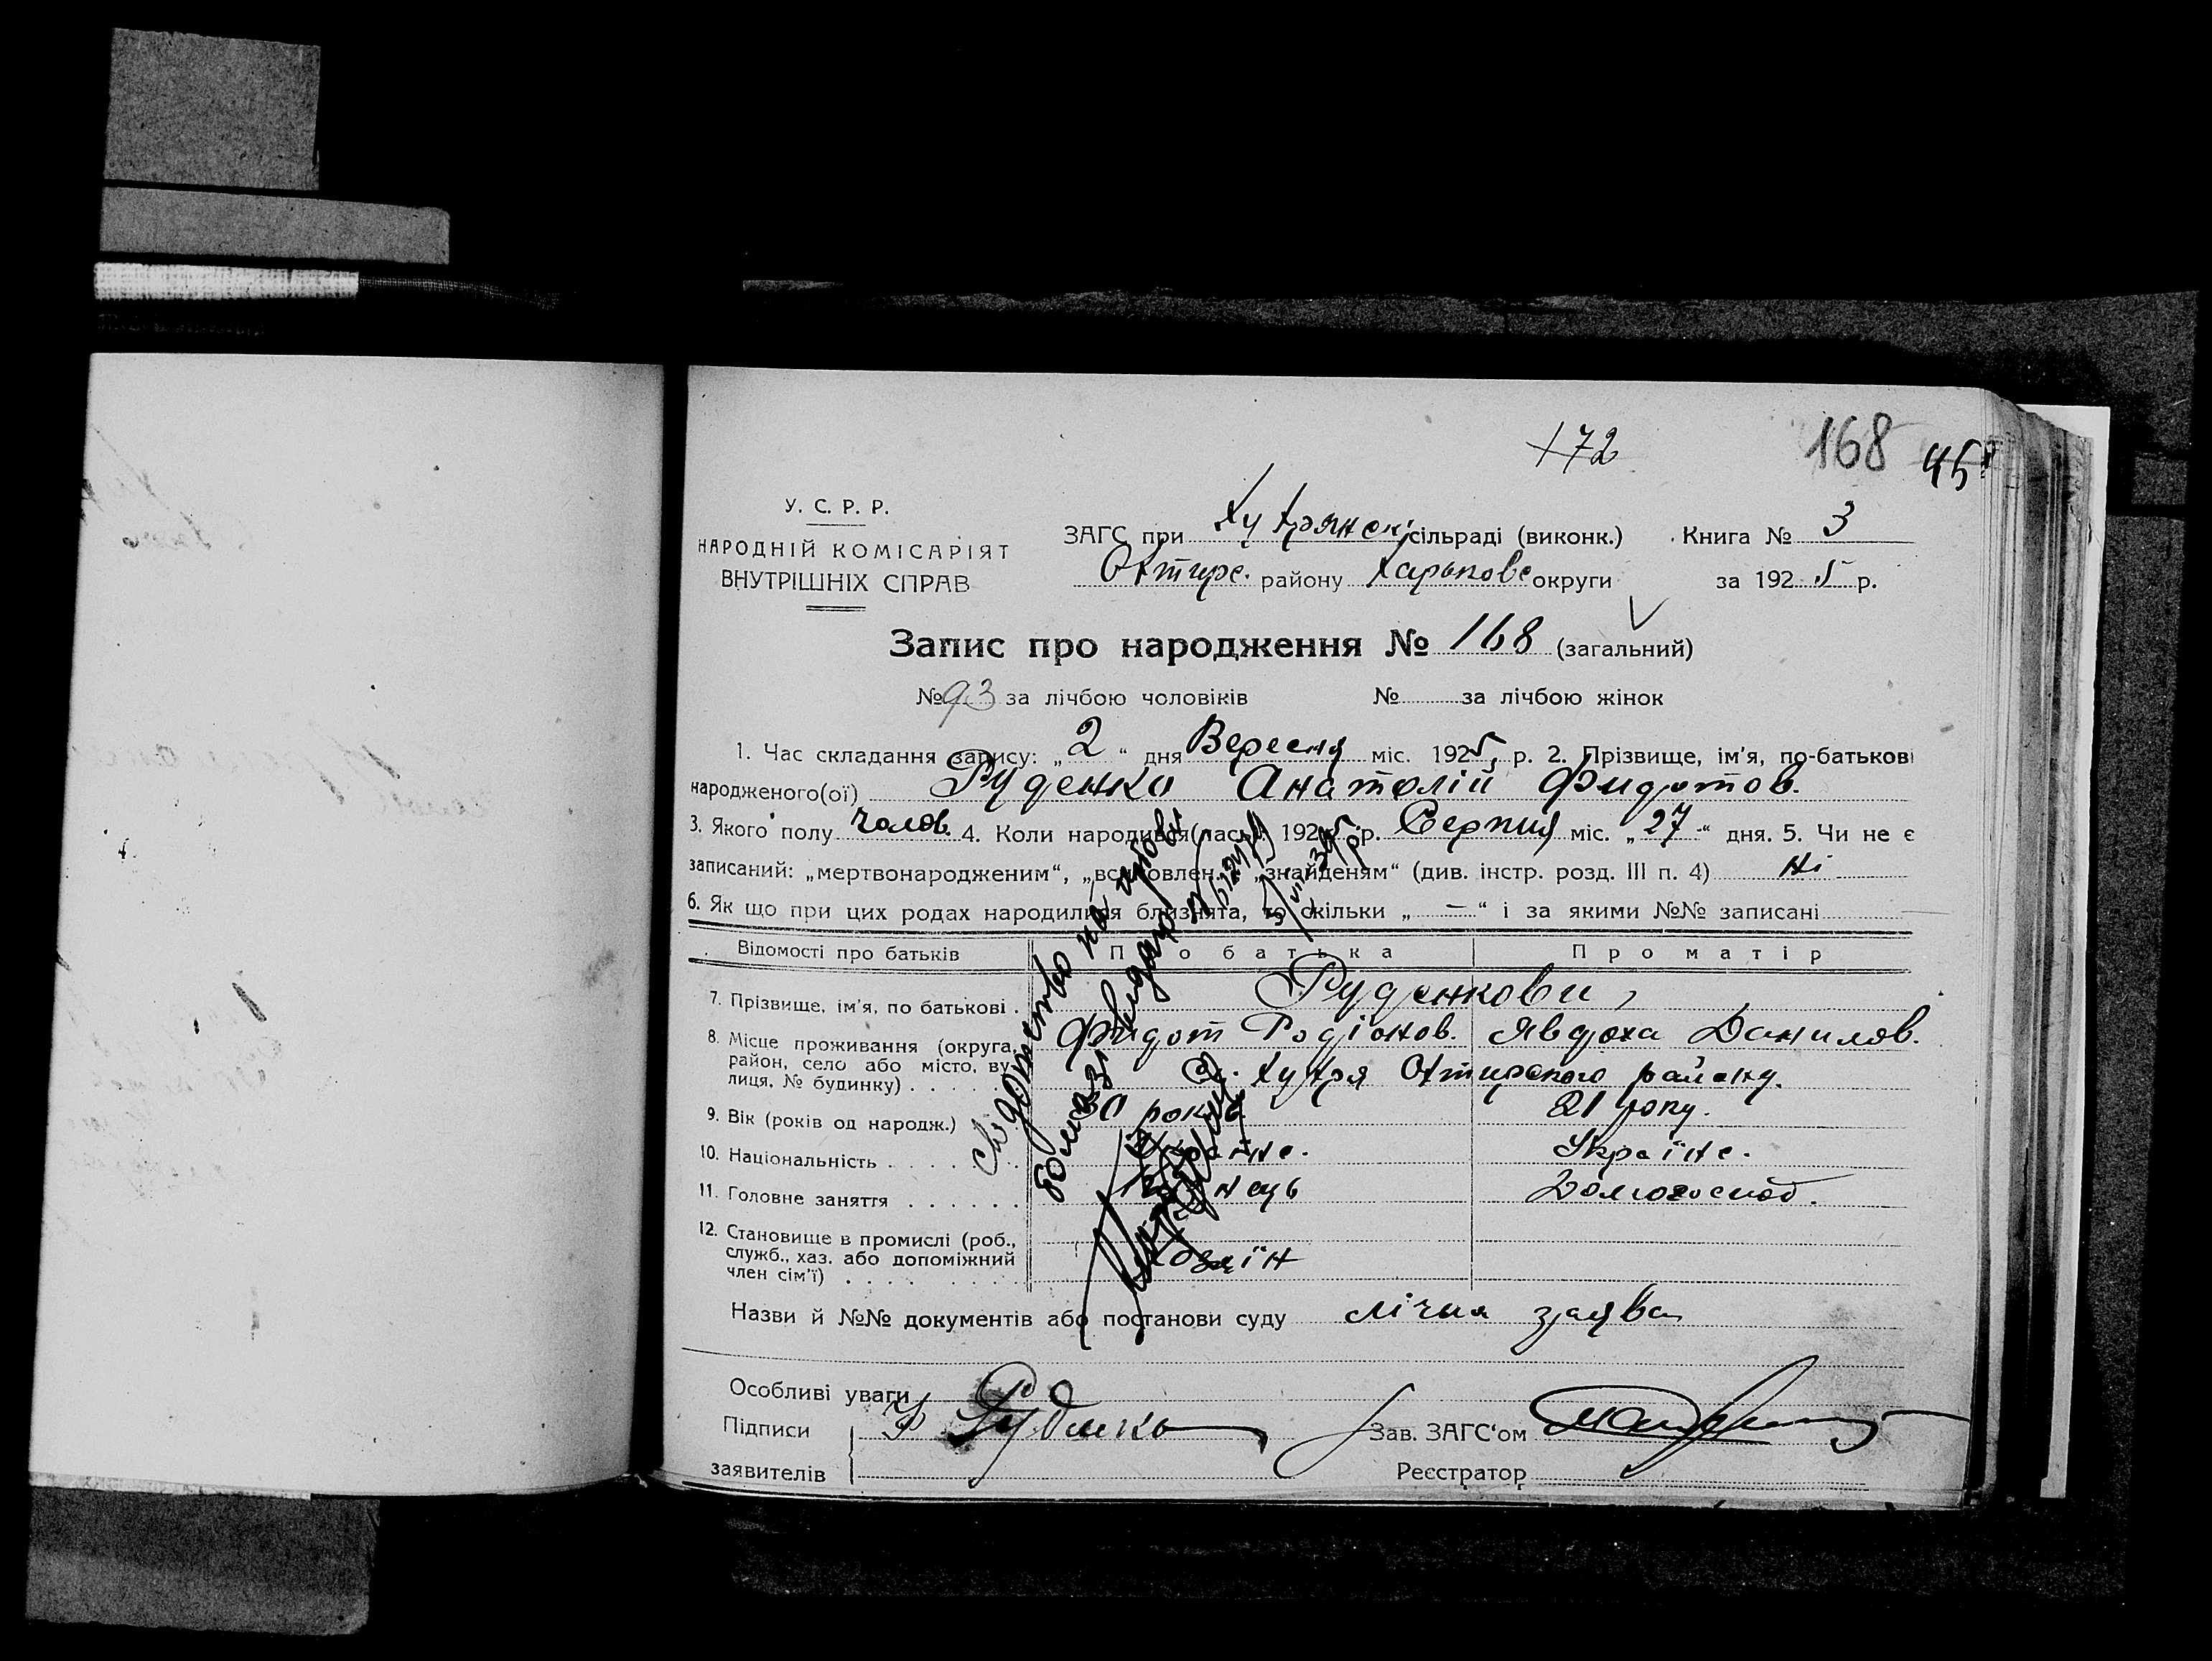 172 168 45
У. С. Р. Р.
НАРОДНІЙ КОМІСАРІЯТ
ВНУТРІШНІХ СПРАВ
ЗАГС при Хухрянск. сільраді (виконк.) Книга № 3
Охтирс. району Харьковс округи за 1925 р.
Запис про народження № 168 (загальний)
№ 93 за лічбою чоловіків № за лічбою жінок
1. Час складання запису: „2“ дня Вересня міс. 1925 р. 2. Прізвище, ім'я, по-батькові
народженого(ої) Руденко Анатолій Фидотов.
3. Якого полу чолов. 4. Коли народився(лась) 1925 р. Серпня міс. „27“ дня. 5. Чи не є
записаний: „мертвонародженим“, „всиновлен.“ „знайденям“ (див. інстр. розд. III п. 4) Ні
6. Як що при цих родах народилися близнята, то скільки „—“ і за якими №№ записані —
Відомості про батьків Про батька Про матір
7. Прізвище, ім'я, по батькові . Руденкови,
Фидот Родіонов. Явдоха Данилов.
8. Місце проживання (округа, район, село або місто, вулиця, № будинку) . . . . С. Хухря Охтирского району.
9. Вік (років од народж.) 30 років 21 року.
10. Національність . . . . . Україне. Україне.
11. Головне заняття . . . . . . Домогоспод.
12. Становище в промислі (роб., служб., хаз. або допоміжний член сім'ї) . . . . . . . Хозяїн
Свідоцтво на
видано
Назви й №№ документів або постанови суду лічня заява
Особливі уваги
Підписи Ф Руденко Зав. ЗАГС'ом
заявителів Реєстратор